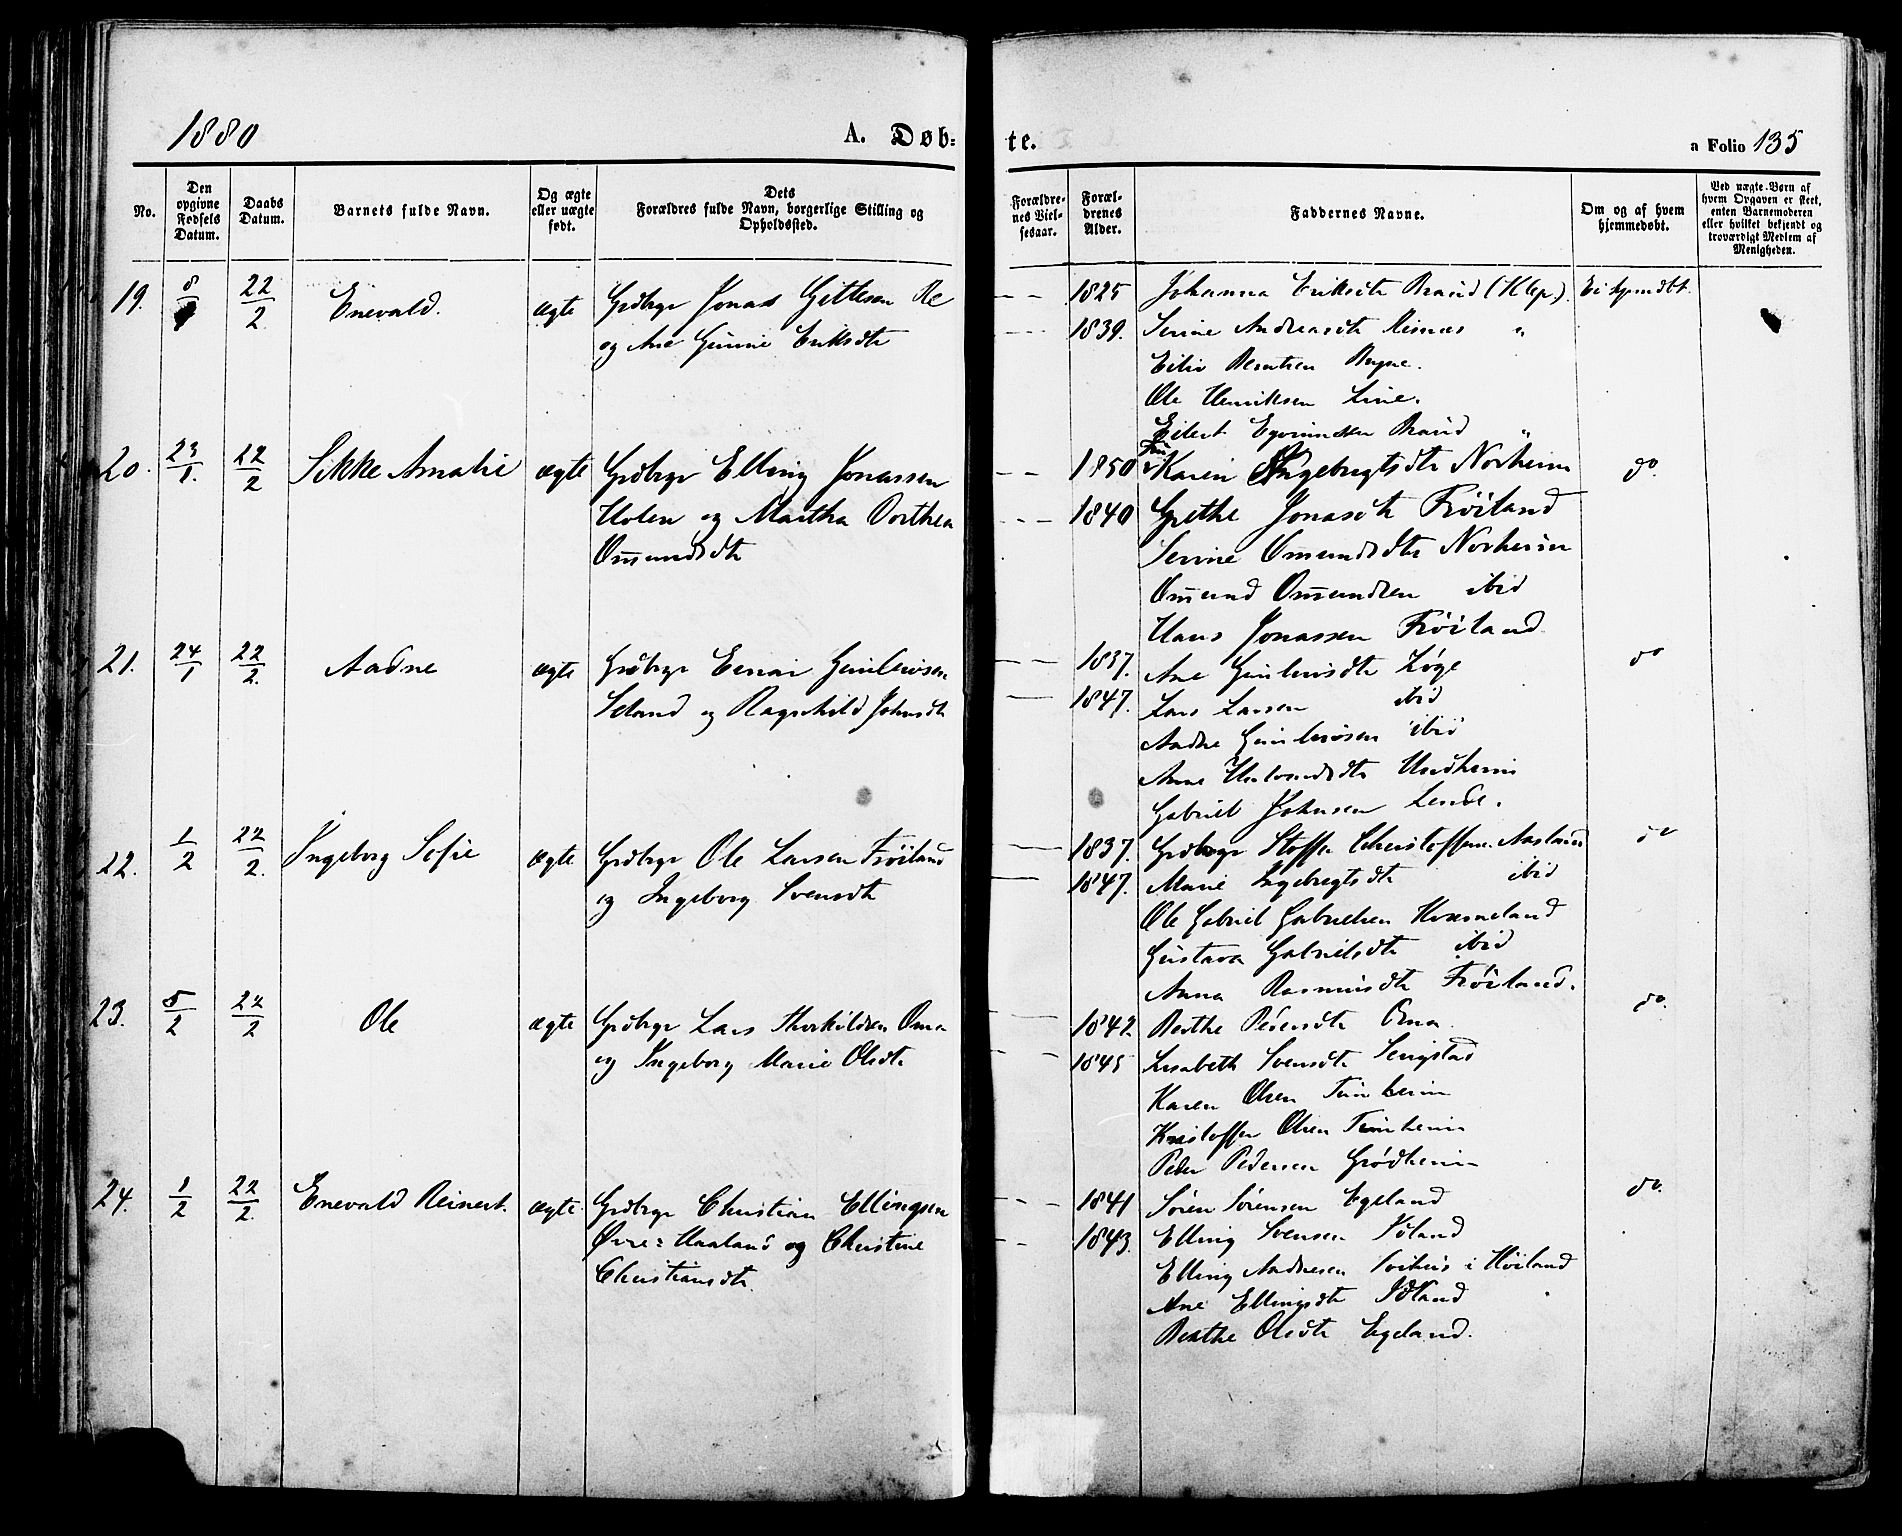 1880
A. Døb=
te.
a Folio 135
No.
Den opgivne Fødsels Datum.
Daabs Datum.
Barnets fulde Navn.
Og ægte eller uægte født.
Dets Forældres fulde Navn, borgerlige Stilling og Opholdssted.
Forældrenes Vielsesaar.
Forældrenes Alder.
Faddernes Navne.
Om og af hvem hjemmedøbt.
Ved uægte Børn af hvem Opgaven er skeet, enten Barnemoderen eller hvilket bekjendt og troværdigt Medlem af Menigheden.
19. 8/ 22/2 Enevald. ægte Grdbrgr Jonas Gittlesen Re
og Ane Gurine Eriksdtr
1825 Johanna Eriksdtr Braud (Klep). Ei hjemdbt.
1839. Serine Andreasdtr
Eiliv Berntsen Bryne.
Ole Henriksen Line.
Eilert Egvundsen Braud "
20. 23/1. 22/2 Sikke Amalie ægte Grdbrgr Elling Jonassen
Holen og Martha Dorthea
Omundsdtr
1850 Karen Ingebrigtsdtr Norheim do.
1840 Grethe Jonasdtr Frøiland
Serine Omundsdtr Norheim
Omund Omundsen ibid
Hans Jonassen Frøiland
21. 24/1 22/2. Aadne ægte Grdbrgr Einar Gunleivsen
Seland og Ragnhild Johnsdtr
1837. Ane Gunleivsdtr Høge do
1847. Lars Larsen ibid
Aadne Gunleivsen ibid
Anne Undheim
Gabriel Johnsen Lende.
22. 1/2 22/2. Ingeborg Sofie ægte Grdbrgr Ole Larsen Frøiland
og Ingeborg Svensdtr
1837. Grdbrgr Stoffer Christoffersen Aasland do
1847. Marie Ingebrigtsdtr ibid
Ole Gabriel Gabrielsen Kvasmeland
Gustava Gabrielsdtr ibid
Anna Rasmusdtr Frøiland.
23. 5/2 22/2 Ole ægte Grdbrgr Lars Thorkildsen Oma
og Ingeborg Marie Olsdtr
1842 Berthe Pedersdtr Oma do.
1845 Lisabeth Svensdtr
Karen Olsen Tunheim
Kristoffer Olsen Tunheim
Peder Pedersen Grødheim
24. 1/2 22/2. Enevald Reinert. ægte Grdbrgr Christian Ellingsen
Øvre=Haaland og Christine
Christiansdtr.
1841 Søren Sørensen Egeland do.
1843. Elling Svensen
Elling Andresen i Høiland
Ane Ellingsdtr
Berthe Olsdtr Egeland.